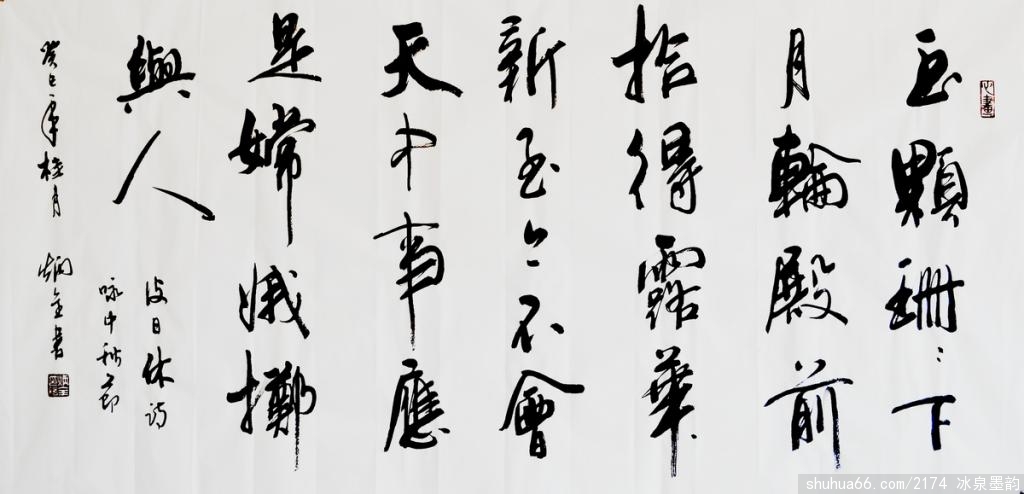 心畫
玉顆珊〻下
月輪殿前
拾得露華
新至今不會
天中事應
是嫦娥擲
與人
皮日休诗
咏中秋节
癸巳年桂月 炳金書
shuhua66.com/2174 冰泉墨韵